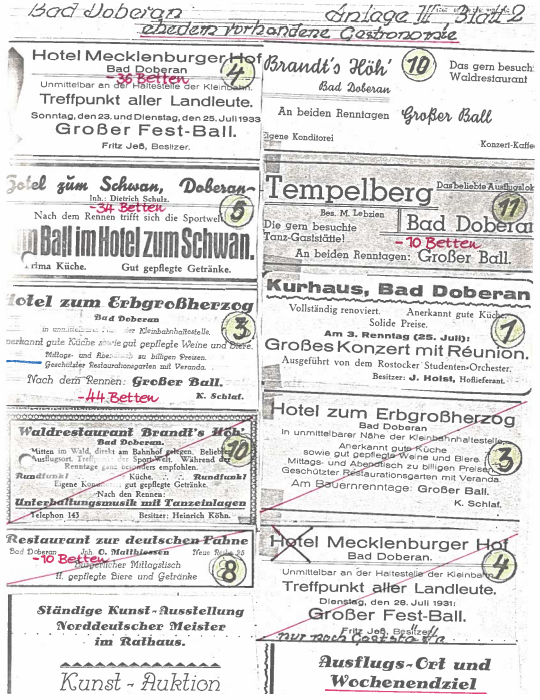 Bad Doberan Anlage III Blatt 2
ehedem vorhandene Gastronomie
Hotel Mecklenburger Hof
Bad Doberan
- 36 Betten
4
Unmittelbar an der Haltestelle der Kleinbahn.
Treffpunkt aller Landleute.
Sonntag, den 23. und Dienstag, den 25. Juli 1933
Großer Fest-Ball.
Fritz Jeß, Besitzer.
Hotel zum Schwan, Doberan
Inh.: Dietrich Schulz.
- 34 Betten
5
Nach dem Rennen trifft sich die Sportwelt
m Ball im Hotel zum Schwan.
rima Küche. Gut gepflegte Getränke.
Hotel zum Erbgroßherzog
Bad Doberan
3
in unmittelbarer der Kleinbahnhaltestelle.
nerkannt gute Küche sowie gut gepflegte Weine und Biere.
Mittags- und zu billigen Preisen.
Geschützter Restaurationsgarten mit Veranda.
Nach dem Rennen: Großer Ball.
- 44 Betten
K. Schlaf.
Waldrestaurant Brandt's Höh'
Bad Doberan.
10
Mitten im Wald, direkt am Bahnhof gelegen. Beliebter
Ausflugsort. Treff der Sport-Welt. Während der
Renntage ganz besonders empfohlen.
Rundfunk! Küche. Rundfunk!
Eigene gut gepflegte Getränke.
Nach den Rennen:
Unterhaltungsmusik mit Tanzeinlagen
Telephon 143 Besitzer: Heinrich Köhn.
Restauration zur deutschen Fahne
Bad Doberan Inh. O. Matthiessen Neue Reihe 35
- 10 Betten
Bürgerlicher Mittagstisch
ff. gepflegte Biere und Getränke
8
Ständige Kunst-Ausstellung
Norddeutscher Meister
im Rathaus.
Kunst-Auktion
Brandt's Höh'
Bad Doberan
10
Das gern besuch
Waldrestaurant
An beiden Renntagen Großer Ball
Eigene Konditorei Konzert-Kaffee
Tempelberg
Das beliebte Ausflugslok
11
Bes. M. Lebzien
Bad Doberan
Die gern besuchte
Tanz-Gaststätte!
- 10 Betten
An beiden Renntagen: Großer Ball.
Kurhaus, Bad Doberan
Vollständig renoviert. Anerkannt gute Küche.
Solide Preise.
1
Am 3. Renntag (25. Juli):
Großes Konzert mit Réunion.
Ausgeführt von dem Rostocker Studenten-Orchester.
Besitzer: J. Holst, Hoflieferant.
Hotel zum Erbgroßherzog
Bad Doberan
In unmittelbarer Nähe der Kleinbahnhaltestelle.
Anerkannt gute Küche
sowie gut gepflegte Weine und Biere.
Mittags- und Abendtisch zu billigen Preisen
Geschützter Restaurationsgarten mit Veranda.
3
Am Bauernrenntage: Großer Ball.
K. Schlaf.
Hotel Mecklenburger Hof
Bad Doberan.
4
Unmittelbar an der Haltestelle der Kleinbahn.
Treffpunkt aller Landleute.
Dienstag, den 28. Juli 1931:
Großer Fest-Ball.
Fritz Jeß, Besitzer
nur noch Gaststätte
Ausflugs-Ort und
Wochenendziel